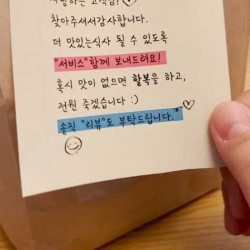 사랑하는 고객님!
찾아주셔서감사합니다.
더 맛있는식사 될 수 있도록
"서비스"함께 보내드려요!
혹시 맛이 없으면 할복을 하고,
전원 죽겠습니다 :)
솔직 "리뷰"도 부탁드립니다.